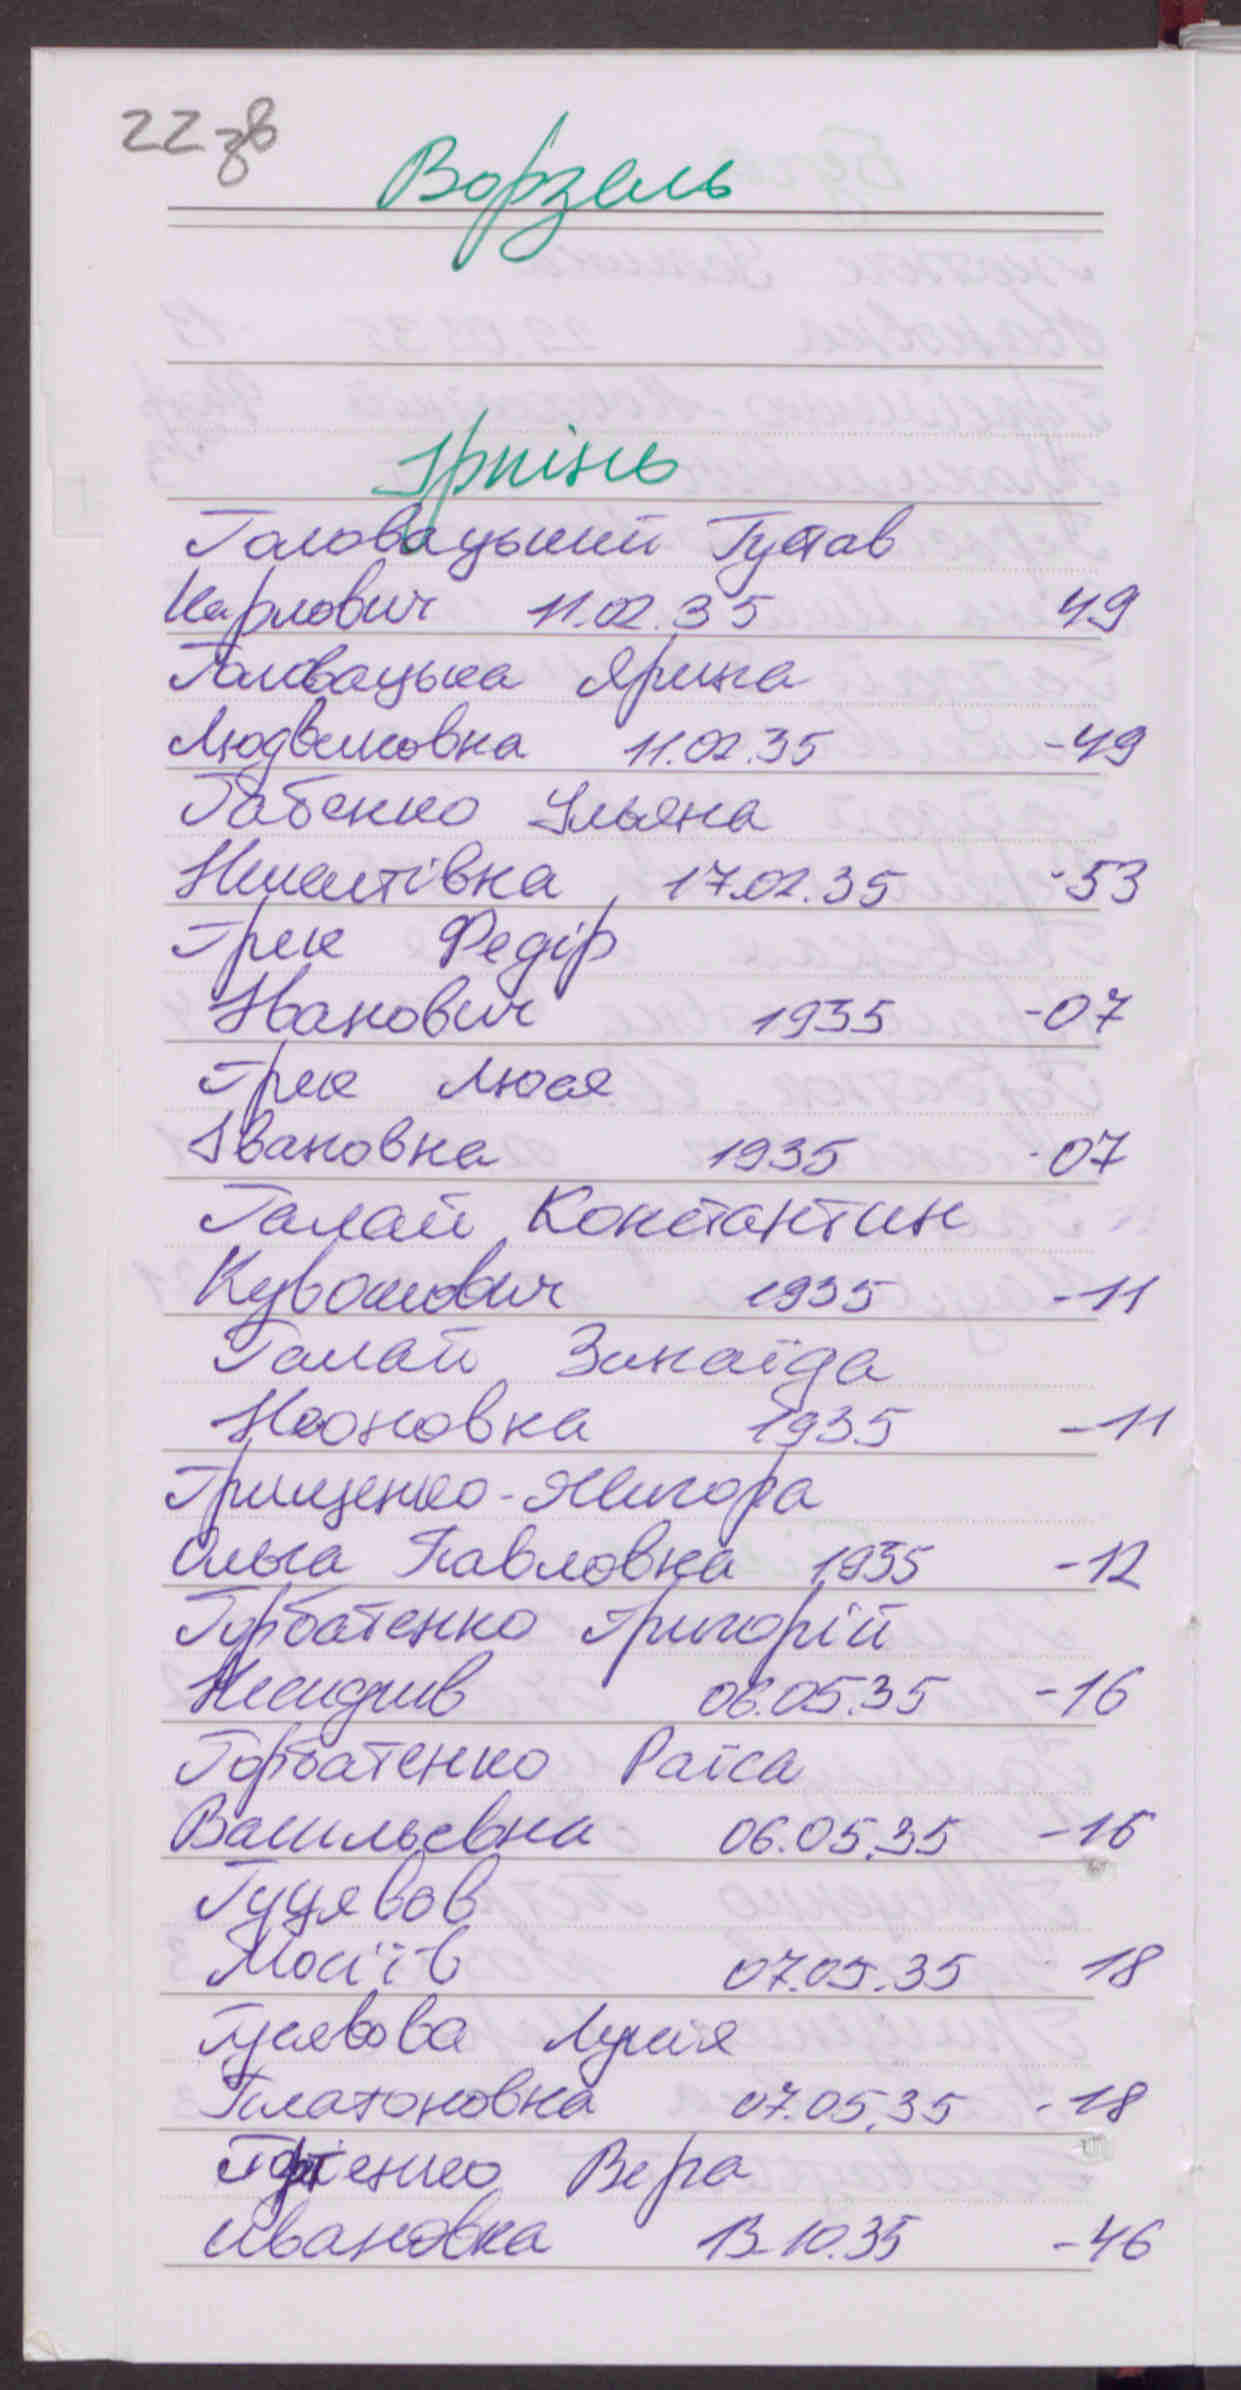 22 зв
Ворзель
Ірпінь
Головацький Густав
Карлович 11.02.35 49
Головацька Ярина
Людвиговка 11.02.35 -49
Габенко Ульяна
17.02.35 -53
Грек Федір
Иванович 1935 -07
Грек Люся
Івановка 1935 -07
Галай Константин
1935 -11
Галай Зинаїда
1935 -11
Грищенко-
Ольга Павловна 1935 -12
Гурбатенко Григорій
06.05.35 -16
Горбатенко Раїса
Васильевна 06.05.35 -16
Гуцявов
Мосіїв 07.05.35 18
Гуцявова
Платоновна 07.05.35 -18
Вера
Ивановка 13.10.35 -46